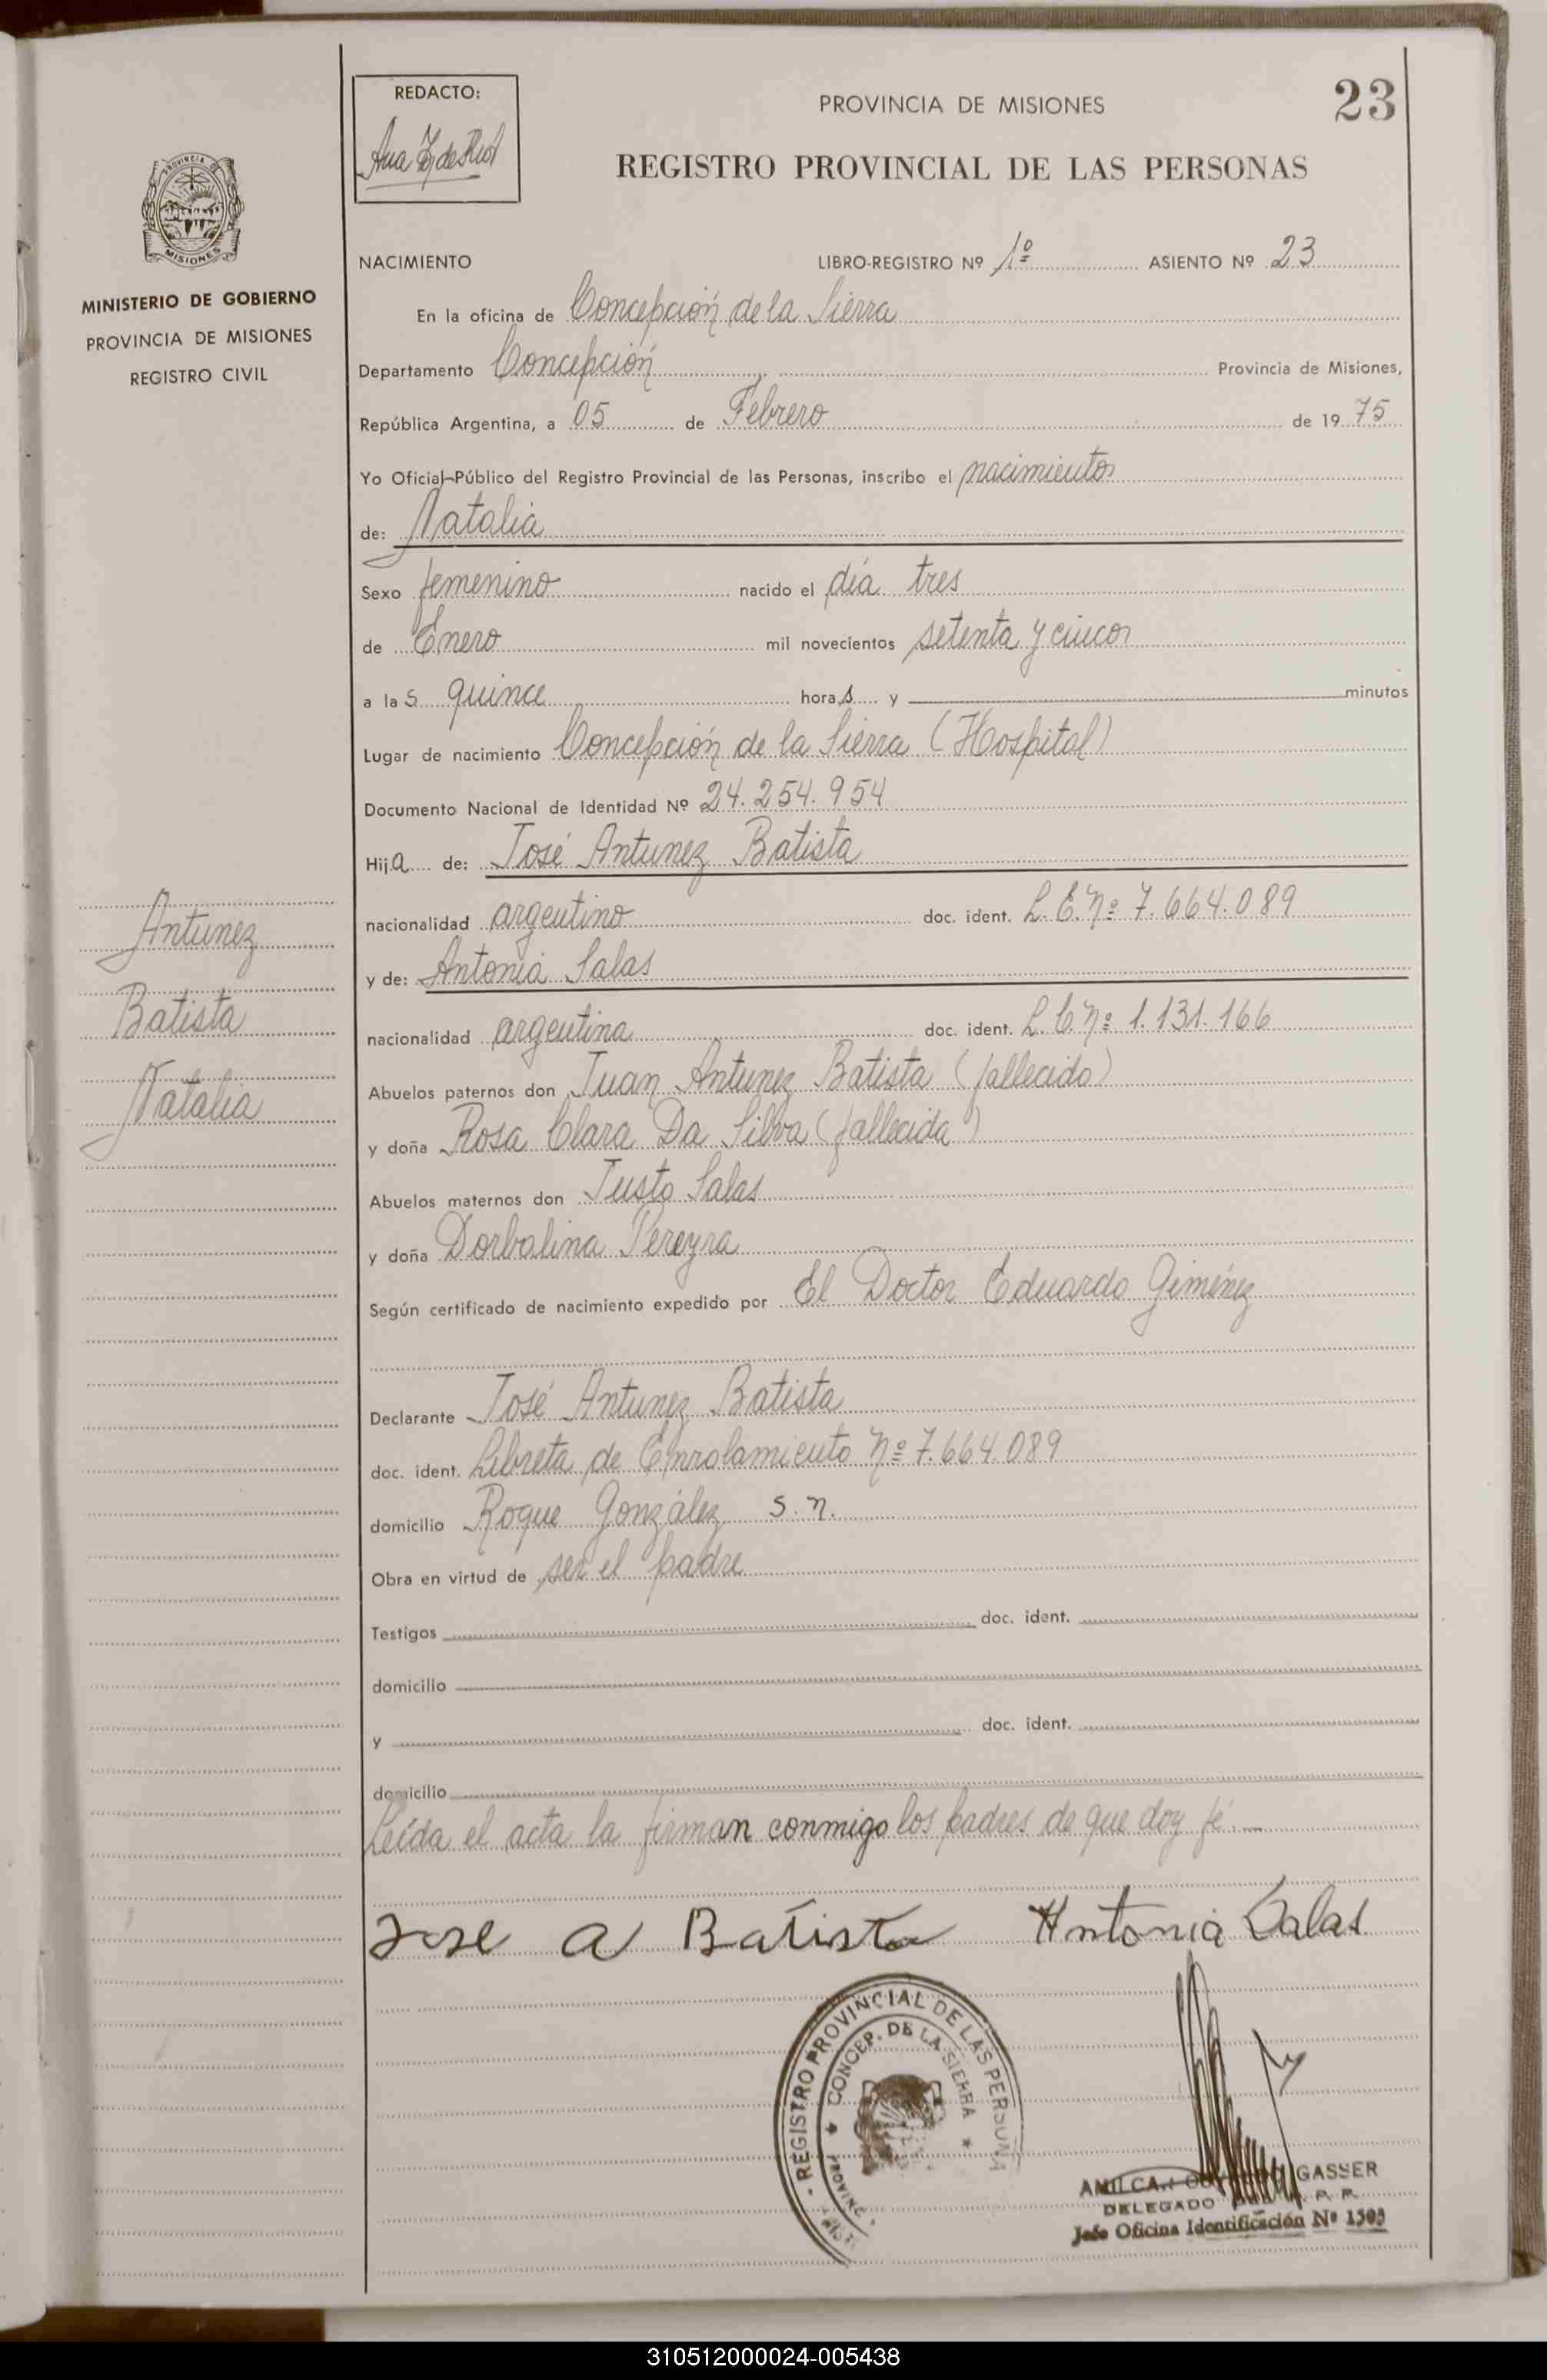 REDACTO:
PROVINCIA DE MISIONES
23
REGISTRO PROVINCIAL DE LAS PERSONAS
MISIONES
MINISTERIO DE GOBIERNO
PROVINCIA DE MISIONES
REGISTRO CIVIL
NACIMIENTO LIBRO-REGISTRO Nº 1º ASIENTO Nº 23
En la oficina de Concepción de la Sierra
Departamento Concepción Provincia de Misiones,
República Argentina, a 05 de Febrero de 1975
Yo Oficial Público del Registro Provincial de las Personas, inscribo el nacimiento
de: Natalia
Sexo femenino nacido el día tres
de Enero mil novecientos setenta y cinco
a las quince horas y minutos
Lugar de nacimiento Concepción de la Sierra (Hospital)
Documento Nacional de Identidad Nº 24.254.954
Hija de: José Antunez Batista
nacionalidad argentino doc. ident. L.E. Nº 7.664.089
y de: Antonia Salas
nacionalidad argentina doc. ident. L.C. Nº 1.131.166
Abuelos paternos don Juan Antunez Batista (fallecido)
y doña Rosa Clara Da Silva (fallecida)
Abuelos maternos don Justo Salas
y doña Dorbalina Pereyra
Según certificado de nacimiento expedido por El Doctor Eduardo Giménez
Declarante José Antunez Batista
doc. ident. Libreta de Enrolamiento Nº 7.664.089
domicilio Roque González s.n.
Obra en virtud de ser el padre
Testigos doc. ident.
domicilio
y doc. ident.
domicilio
Leída el acta la firman conmigo los padres de que doy fé.
Antunez
Batista
Natalia
Jose a Batista Antonia Salas
REGISTRO PROVINCIAL DE LAS PERSONA
CONCEP. DE LA SIERRA
GASSER
DELEGADO
Jefe Oficina Identificación Nº 1505
310512000024-005438